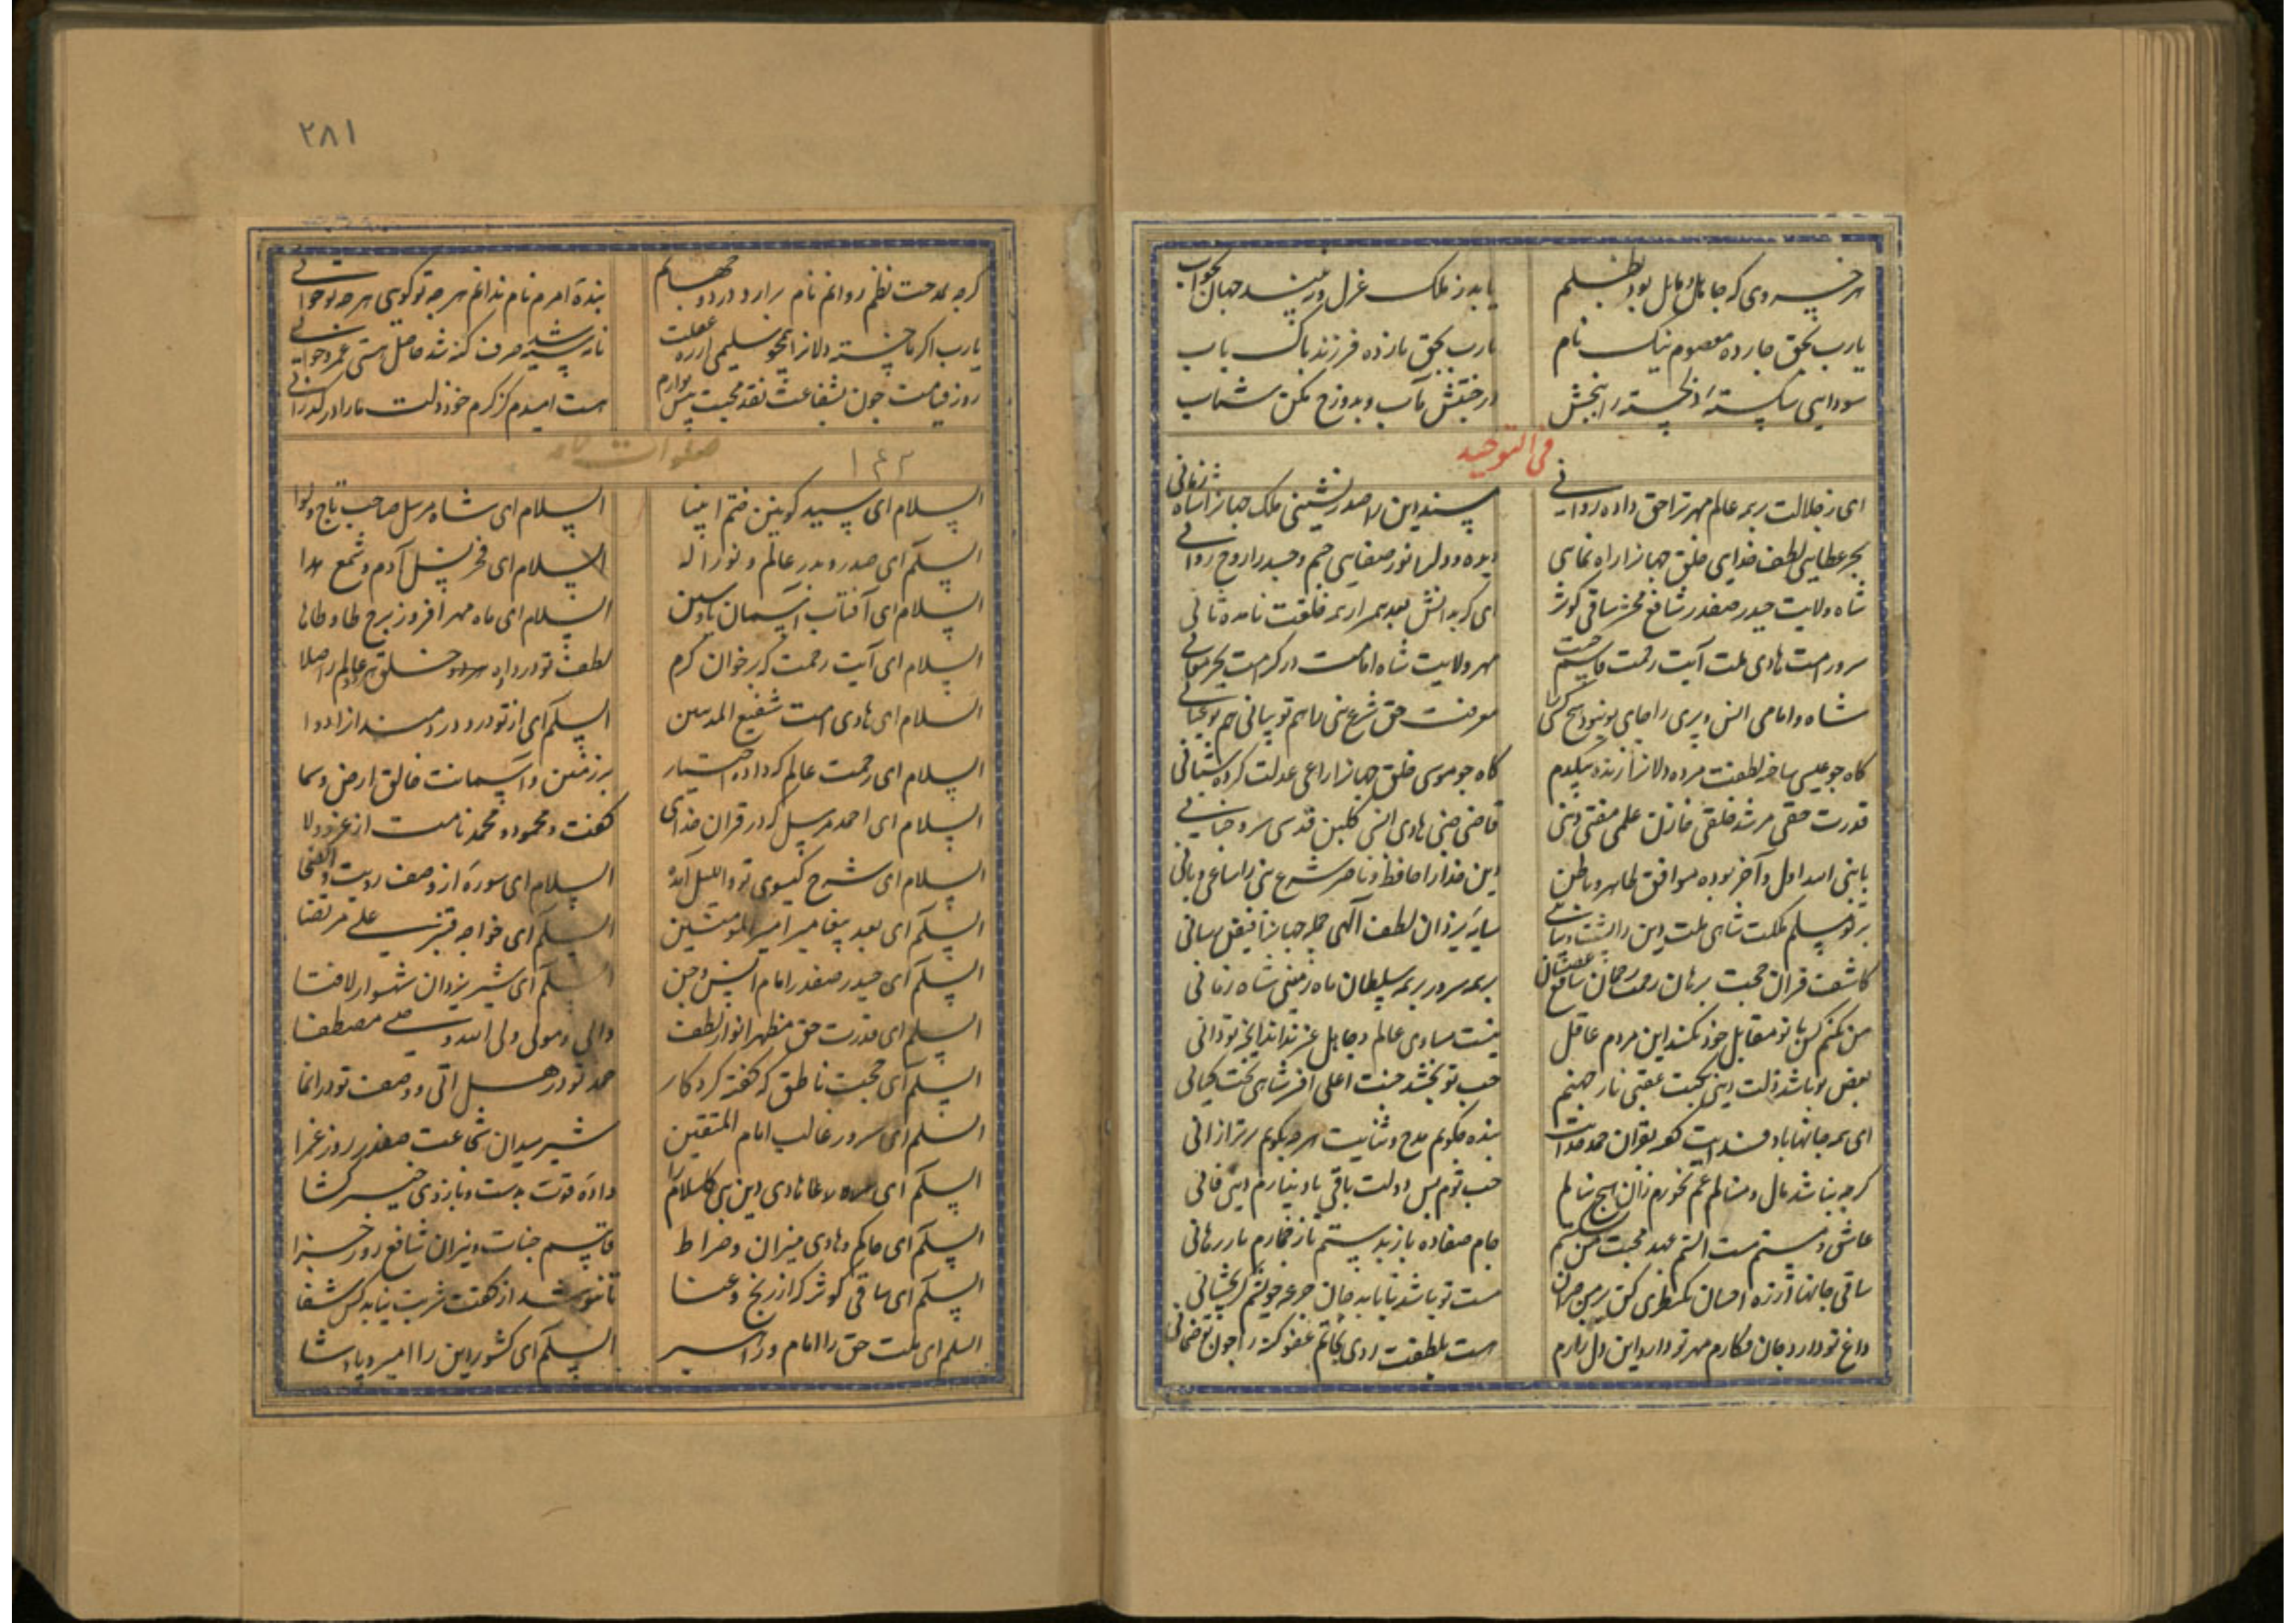 هر خسروی که جامل و مایل بود بظلم
یابد ز ملک عزل و نبیند جهان بخواب
یارب بحق چارده معصوم نیک نام
یارب بحق یازده فرزند باک باب
سودایی شکسته دلخسته را ببخش
در جنتش مآب و بدوزخ مکن شتاب
فی التوحید
ای ز جلالت بر همه عالم مهر ترا حق داده روانی
مسند دین را صدر نشینی ملک جهانرا شاه زمانی
بحر عطایی لطف خدایی خلق جهانرا راه نمایی
دیده و دل را نور صفایی جسم و جسد را روح روانی
شاه ولایت حیدر صفدر شافع محشر ساقی کوثر
ای که بدانش بعد پیمبر از همه خلقت نامده ثانی
سرور امت هادی ملت آیت رحمت قاسم جنت
مهر ولایت شاه امامت در کرامت بحر معانی
شاه و امامی انس و پری را
معرفت حق شرع نبی را هم تو بیانی هم تو عیانی
گاه چو عیسی ساخته لطفت مرده دلانرا زنده بیکدم
گاه چو موسی خلق جهانرا راعی عدلت کرده شبانی
قدرت حقی مرشد خلقی خازن علمی مفتی دینی
قاضی جنی هادی انسی گلبن قدسی سرو جنانی
با نبی الله اول و آخر بوده موافق ظاهر و باطن
دین خدا را حافظ و ناصر شرع نبی را ساعی و بانی
بر تو مسلم مملکت شاهی ملت و دین را پشت و پناهی
سایه یزدان لطف الهی جمله جهانرا فیض رسانی
کاشف قرآن حجت برهان رحمت رحمان شافع عصیان
بر همه سرور بر همه سلطان ماه زمینی شاه زمانی
من نکنم کس با تو مقابل خود نکند این مردم عاقل
نیست مساوی عالم و جاهل غیر نداند آنچه تو دانی
بغض تو باشد ذلت دینی نکبت عقبی نار جهنم
حب تو بخشد جنت اعلی افسر شاهی تخت کیانی
ای همه جانها باد فدایت گفته بقرآن حمد خدایت
بنده چگویم مدح و ثنایت هرچه بگویم برتر از آنی
گرچه نباشد مال و منالم غم نخورم زان هیچ ننالم
حب توم بس دولت باقی باد نیارم دینی فانی
عاشق و مستم مست الستم عهد محبت من نشکستم
جام صفا ده باز بدستم تا ز خمارم باز رهانی
ساقی جانها از ره احسان یک نظری کن بر من حیران
مست تو باشد تا بابد جان جرعه چو بیشم گر بچشانی
داغ تو دارد جان فگارم مهر تو دارد این دل زارم
هست بلطفت روی نجاتم عفو گنه را چون تو ضمانی
۲۸۱
گرچه بمدحت نظم روانم نام برآرد در دو جهانم
بنده امرم نام ندانم هرچه تو گویی هرچه تو خوانی
یارب اگر ما خسته دلانرا
نامه سیه شد صرف گنه شد حاصل هستی عمر و جوانی
روز قیامت چون بشفاعت نقد محبت پیش تو آرم
هست امیدم کز کرم خود ذلت ما را درگذرانی
صلوات نامه
۱۶۳
السلام ای سید کونین ختم انبیا
السلام ای شاه مرسل صاحب تاج و لوا
السلام ای صدر و بدر عالم و نور اله
السلام ای فخر نسل آدم و شمع هدا
السلام ای آفتاب آسمان یا و سین
السلام ای ماه مهر افروز برج طا و ها
السلام ای آیت رحمت که بر خوان کرم
لطف تو در داده خلق هر دو عالم را صلا
السلام ای هادی امت شفیع المذنبین
السلام ای از تو درد دردمندانرا دوا
السلام ای رحمت عالم که داده اختیار
بر زمین و آسمانت خالق ارض و سما
السلام ای احمد مرسل که در قرآن خدای
گفت و محمود و محمد نامت از عز و ولا
السلام ای شرح گیسوی تو واللیل آمده
السلام ای سوره از وصف رویت والضحی
السلام ای بعد پیغامبر امیر المومنین
السلام ای خواجه قنبر علی مرتضا
السلام ای حیدر صفدر امام انس و جن
السلام ای شیر یزدان شهسوار لافتا
السلام ای قدرت حق مظهر انوار لطف
والی و مولی ولی الله وصی مصطفا
السلام ای حجت ناطق که گفته کردگار
حمد تو در هل اتی و وصف تو در انما
السلام ای سرور غالب امام المتقین
شیر میدان شجاعت صفدر روز غزا
السلام ای هادی دین نبی کاسلام را
داده قوت بدست و بازوی خیبر گشا
السلام ای حاکم و هادی میزان و صراط
قاسم جنات و نیران شافع روز جزا
السلام ای ساقی کوثر که از رنج و عنا
تا ننوشد از کفت شربت نیابد کس شفا
السلام ای ملت حق را امام و راسر
السلام ای کشور دین را امیر و پادشا